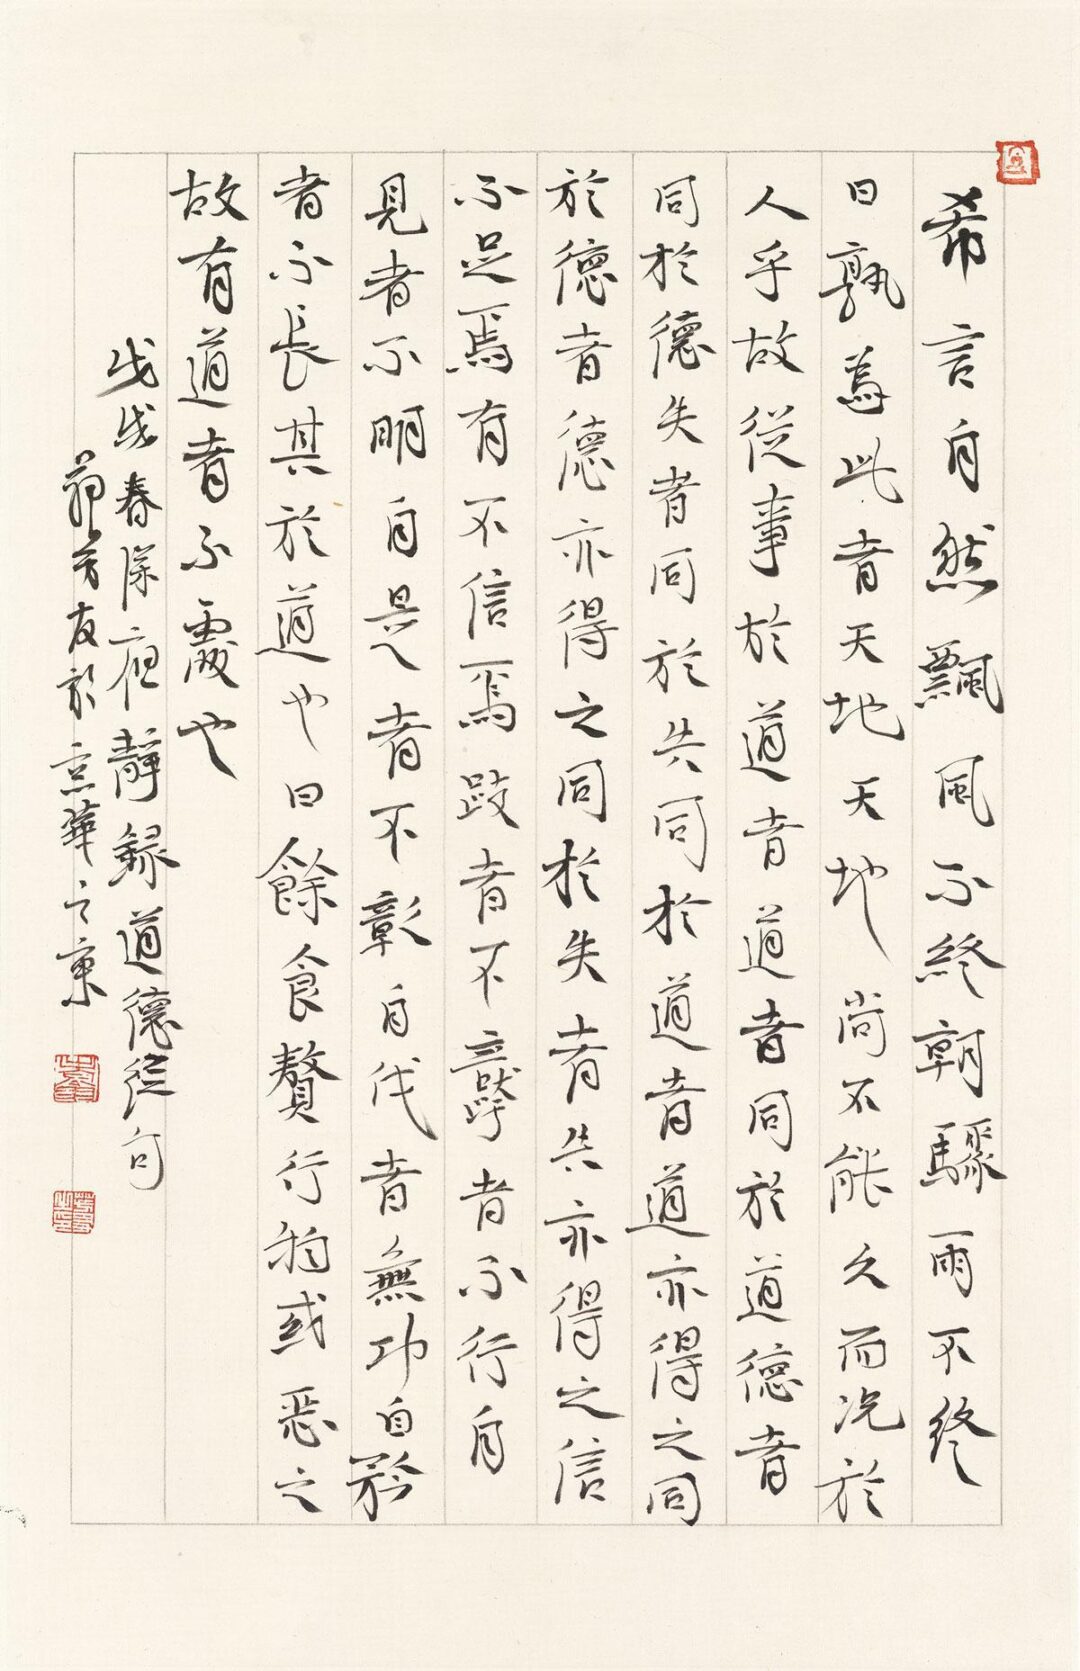 希言自然飄風不終朝驟雨不終
日孰為此者天地天地尚不能久而況於
人乎故從事於道者道者同於道德者
同於德失者同於失同於道者道亦得之同
於德者德亦得之同於失者失亦得之信
不足焉有不信焉跂者不立跨者不行自
見者不明自是者不彰自伐者無功自矜
者不長其於道也曰餘食贅行物或惡之
故有道者不處也
戊戌春深夜靜錄道德經句
友於京華之東